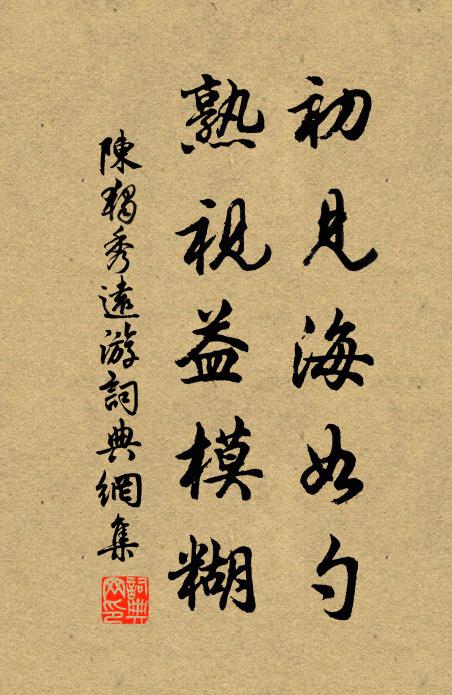 初見海如勺
熟視益模糊
陳獨秀遠游詞典網集
詞典網印